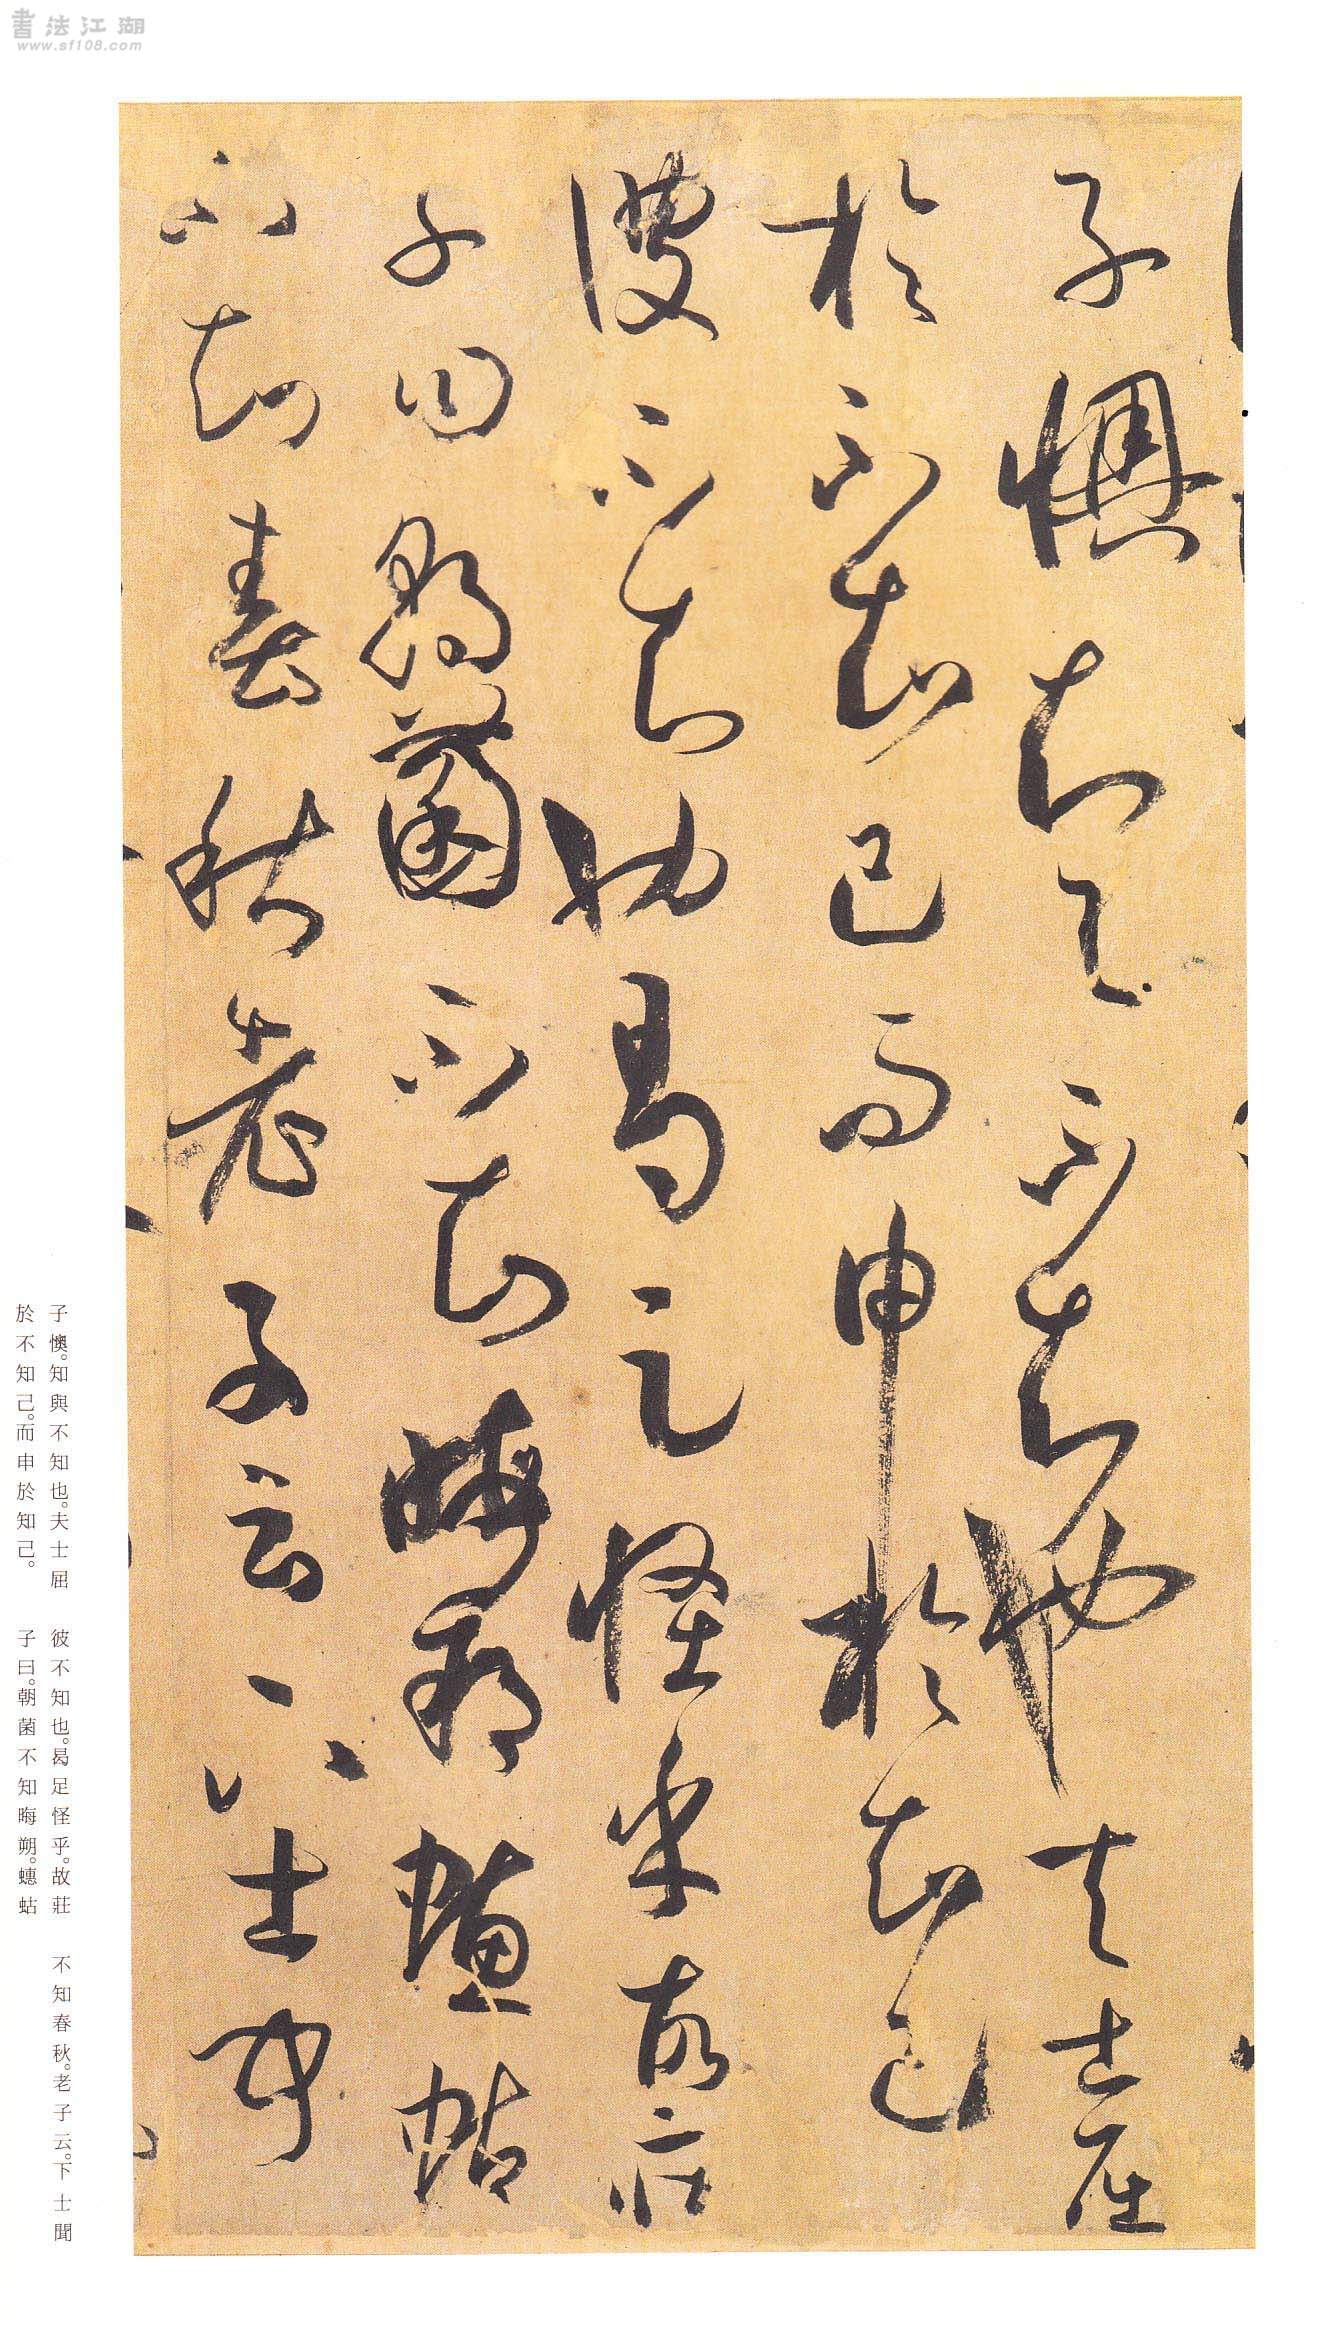 書法江湖
www.sf108.com
子懊知與不知也夫士屈
於不知己而申於知己
彼不知也曷足怪乎故莊
子曰朝菌不知晦朔蟪蛄
不知春秋老子云下士聞
子懊。知與不知也。夫士屈
於不知己。而申於知己。
彼不知也。曷足怪乎。故莊
子曰。朝菌不知晦朔。蟪蛄
不知春秋。老子云。下士聞